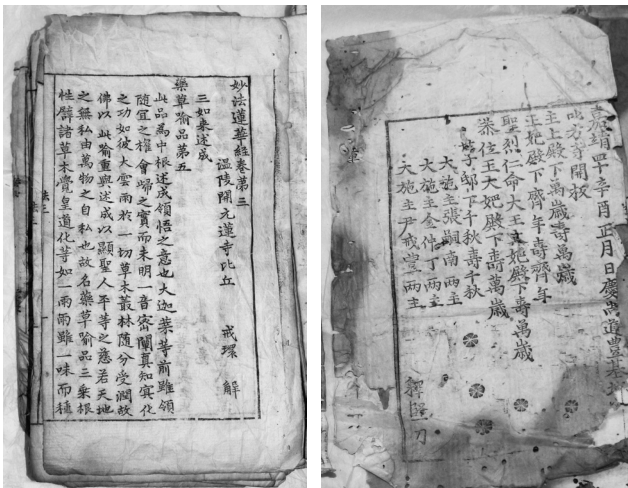 妙法蓮華經卷第三
溫陵開元蓮寺比丘 戒環 解
三如来述成
藥草喻品第五
此品為中根述成領悟之意也大迦葉等前雖領
随宜之權會歸之實而未明一音密闡真知冥化
之功如彼大雲雨於一切草木叢林随分受潤故
佛以此喻重與述成以顯聖人平等之慈若天地
之無私由萬物之自私也故名藥草喻品三乗根
性譬諸草木覺皇道化等如一雨雨雖一味而種
法三
嘉靖四十辛酉正月日慶尚道豊基地
叱方寺開板
主上殿下萬歲壽萬歲
王妃殿下齊年壽齊年
聖烈仁命大王大妃殿下壽萬歲
恭 王大妃殿下壽萬歲
世子邸下千秋壽千秋
大施主張 南兩主
大施主金仲丁兩主
大施主尹戒豊兩主
刀